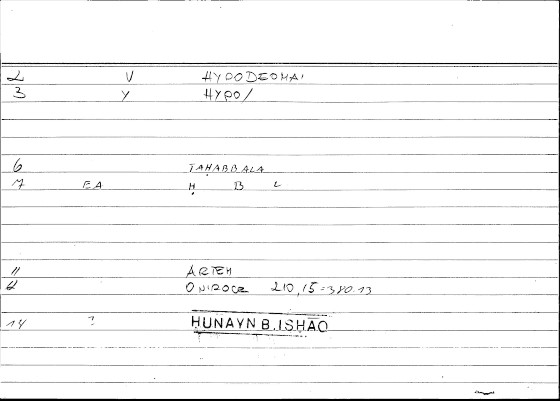 2 V HYPODEOMAI
3 Y HYPO/
6 TAḤABBALA
7 EA Ḥ B L
11 ARTEM
12 ONIROCR 210,15=380.13
14 ? HUNAYN B.ISḤĀQ